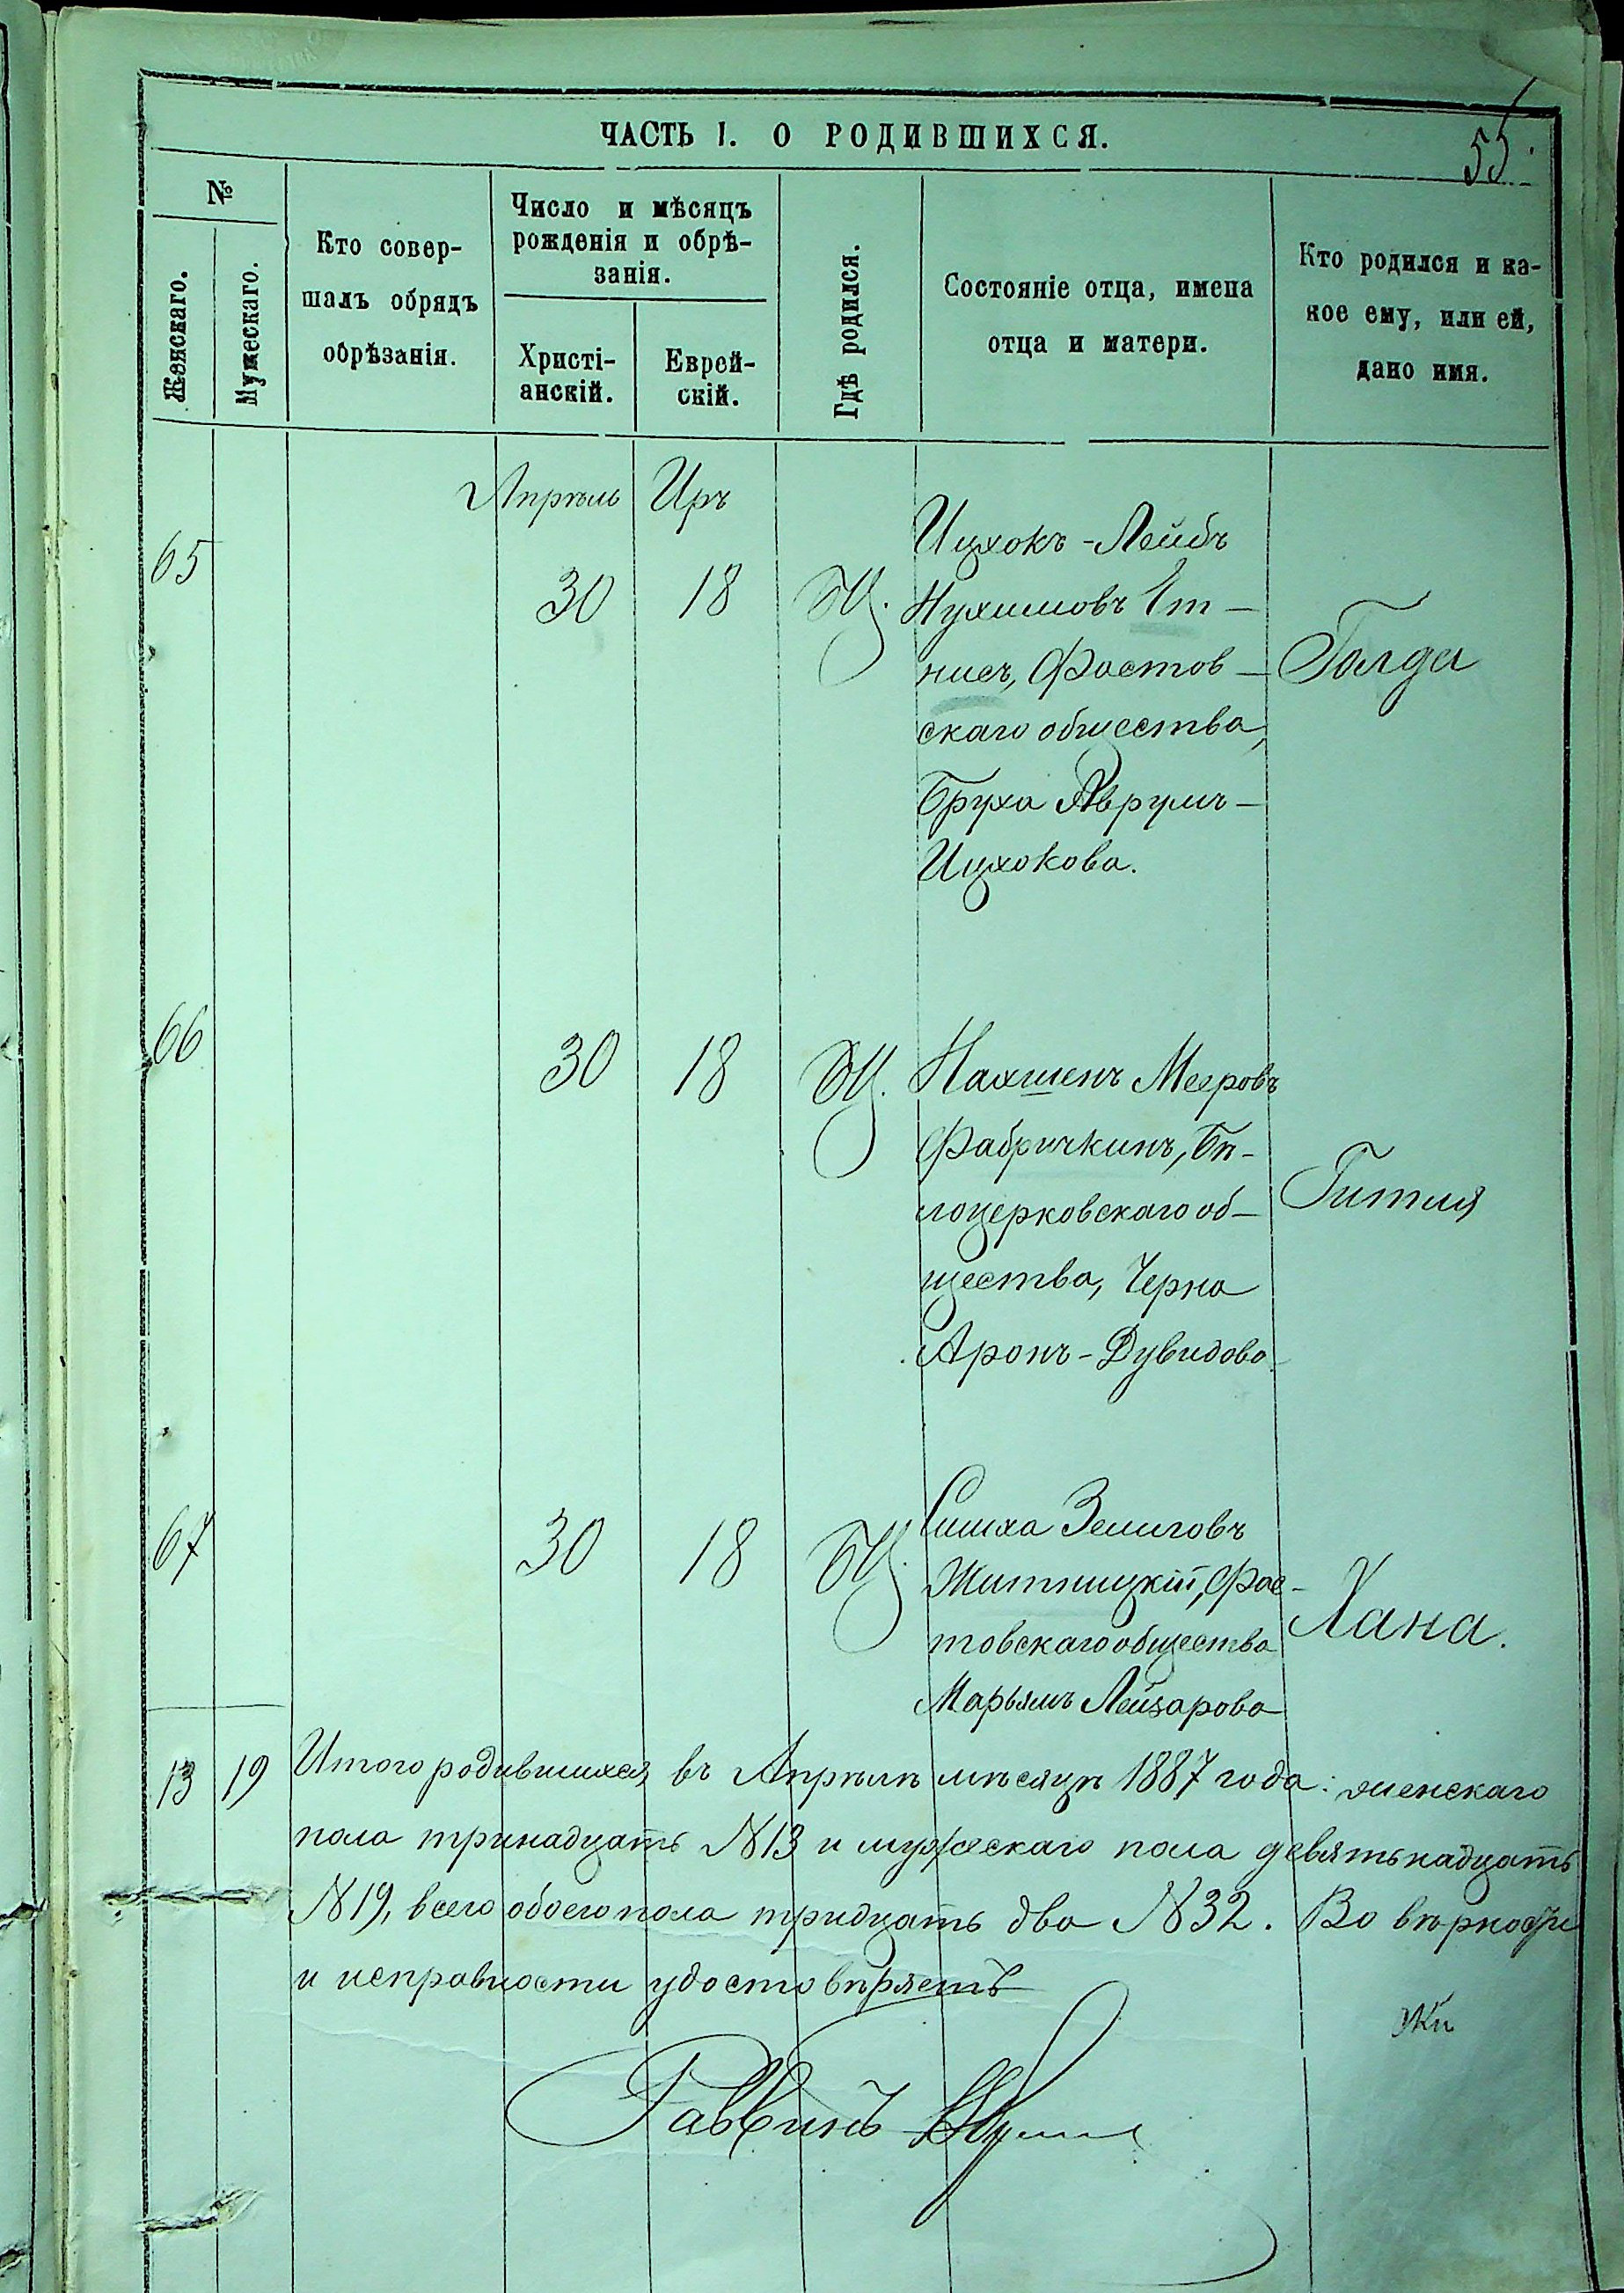 55
ЧАСТЬ I. О РОДИВШИХСЯ.
№
Женскаго.
Мужескаго.
Кто совер-
шалъ обрядъ
обрѣзанія.
Число и мѣсяцъ
рожденія и обрѣ-
занія.
Христі-
анскій.
Еврей-
скій.
Гдѣ родился.
Состояніе отца, имена
отца и матери.
Кто родился и ка-
кое ему, или ей,
дано имя.
Апрѣль Иръ
65 30 18 БЦ.
Ицхокъ-Лейбъ
Нухимовъ
Фастов-
скаго общества,
Бруха Аврумъ-
Ицхокова.
Голда
66 30 18 БЦ.
Нахменъ Мееровъ
Фабричкинъ, Бѣ-
лоцерковскаго об-
щества, Черна
Аронъ-Дувидова
Гитля
67 30 18 БЦ.
Симха Зелиговъ
Житницкій, Фас-
товскаго общества
Марьямъ Лейзарова
Хана.
13 19 Итого родившихся въ Апрѣлѣ мѣсяцѣ 1887 года: женскаго
пола тринадцать №13 и мужескаго пола девятьнадцать
№19, всего обоего пола тридцать два №32. Во вѣрности
и исправности удостовѣряетъ
Раввинъ